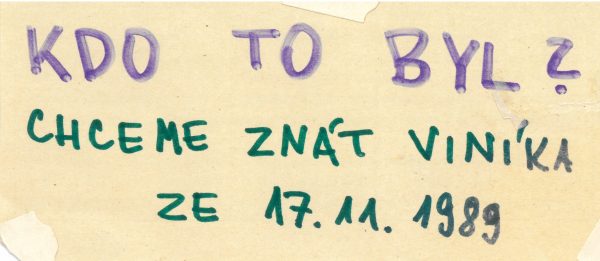 KDO TO BYL?
CHCEME ZNÁT VINÍKA
ZE 17.11.1989